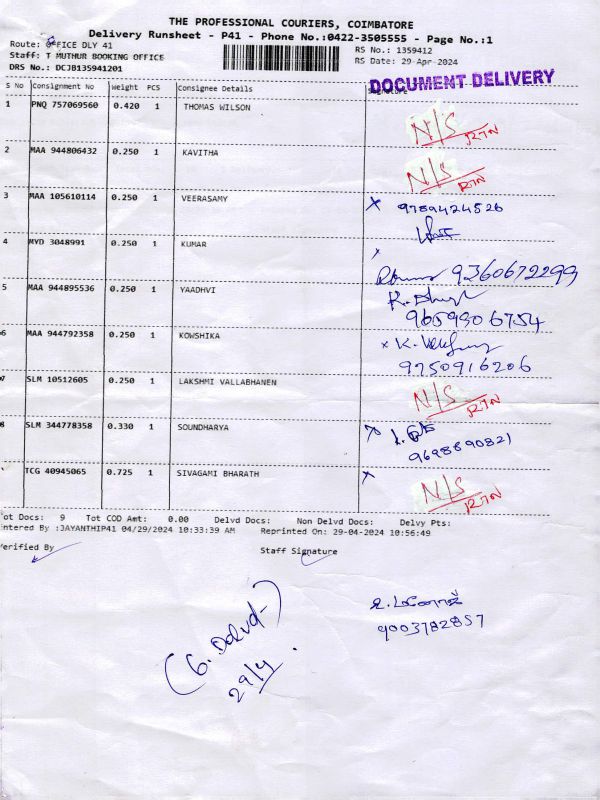 THE PROFESSIONAL COURIERS, COIMBATORE
Delivery Runsheet - P41 - Phone No.:0422-3505555 - Page No.:1
Route: OFFICE DLY 41
RS No.: 1359412
Staff: T MUTHUR BOOKING OFFICE
RS Date: 29-Apr-2024
DRS No.: DCJB135941201
DOCUMENT DELIVERY
S No Consignment No Weight PCS Consignee Details Signature
1 PNQ 757069560 0.420 1 THOMAS WILSON
N/S RTN
2 MAA 944806432 0.250 1 KAVITHA
N/S RTN
3 MAA 105610114 0.250 1 VEERASAMY
x 9789424526
4 MYD 3048991 0.250 1 KUMAR
x
9360672299
5 MAA 944895536 0.250 1 YAADHVI
9659306754
6 MAA 944792358 0.250 1 KOWSHIKA
x K.
9750916206
7 SLM 10512605 0.250 1 LAKSHMI VALLABHANEN
N/S RTN
8 SLM 344778358 0.330 1 SOUNDHARYA
9698890821
TCG 40945065 0.725 1 SIVAGAMI BHARATH
x
N/S RTN
ot Docs: 9 Tot COD Amt: 0.00 Delvd Docs: Non Delvd Docs: Delvy Pts:
ntered By :JAYANTHIP41 04/29/2024 10:33:39 AM Reprinted On: 29-04-2024 10:56:49
erified By Staff Signature
(6. Delvd-)
29/4.
9003782857